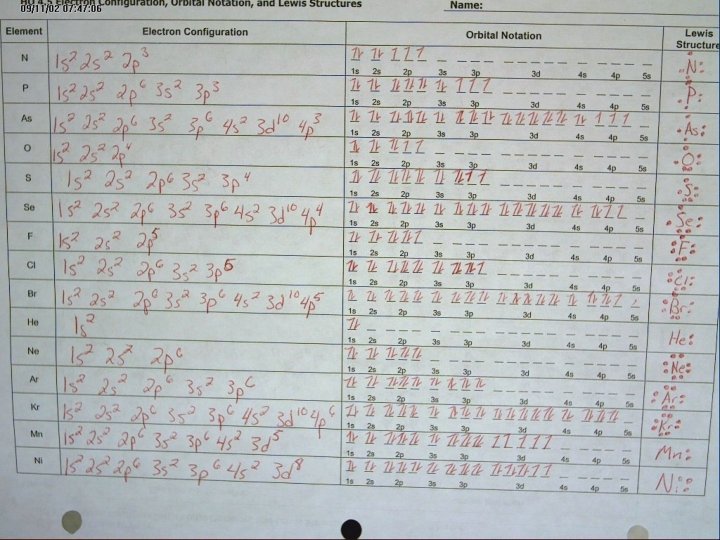 HO 4.5 Electron Configuration, Orbital Notation, and Lewis Structures Name:
09/11/02 07:47:06
Element Electron Configuration Orbital Notation Lewis Structure
N 1s² 2s² 2p³ N
1s 2s 2p 3s 3p 3d 4s 4p 5s
P 1s² 2s² 2p⁶ 3s² 3p³ P
1s 2s 2p 3s 3p 3d 4s 4p 5s
As 1s² 2s² 2p⁶ 3s² 3p⁶ 4s² 3d¹⁰ 4p³ As
1s 2s 2p 3s 3p 3d 4s 4p 5s
O 1s² 2s² 2p⁴ O
1s 2s 2p 3s 3p 3d 4s 4p 5s
S 1s² 2s² 2p⁶ 3s² 3p⁴ S
1s 2s 2p 3s 3p 3d 4s 4p 5s
Se 1s² 2s² 2p⁶ 3s² 3p⁶ 4s² 3d¹⁰ 4p⁴ Se
1s 2s 2p 3s 3p 3d 4s 4p 5s
F 1s² 2s² 2p⁵ F
1s 2s 2p 3s 3p 3d 4s 4p 5s
Cl 1s² 2s² 2p⁶ 3s² 3p⁵ Cl
1s 2s 2p 3s 3p 3d 4s 4p 5s
Br 1s² 2s² 2p⁶ 3s² 3p⁶ 4s² 3d¹⁰ 4p⁵ Br
1s 2s 2p 3s 3p 3d 4s 4p 5s
He 1s² He
1s 2s 2p 3s 3p 3d 4s 4p 5s
Ne 1s² 2s² 2p⁶ Ne
1s 2s 2p 3s 3p 3d 4s 4p 5s
Ar 1s² 2s² 2p⁶ 3s² 3p⁶ Ar
1s 2s 2p 3s 3p 3d 4s 4p 5s
Kr 1s² 2s² 2p⁶ 3s² 3p⁶ 4s² 3d¹⁰ 4p⁶ Kr
1s 2s 2p 3s 3p 3d 4s 4p 5s
Mn 1s² 2s² 2p⁶ 3s² 3p⁶ 4s² 3d⁵ Mn
1s 2s 2p 3s 3p 3d 4s 4p 5s
Ni 1s² 2s² 2p⁶ 3s² 3p⁶ 4s² 3d⁸ Ni
1s 2s 2p 3s 3p 3d 4s 4p 5s